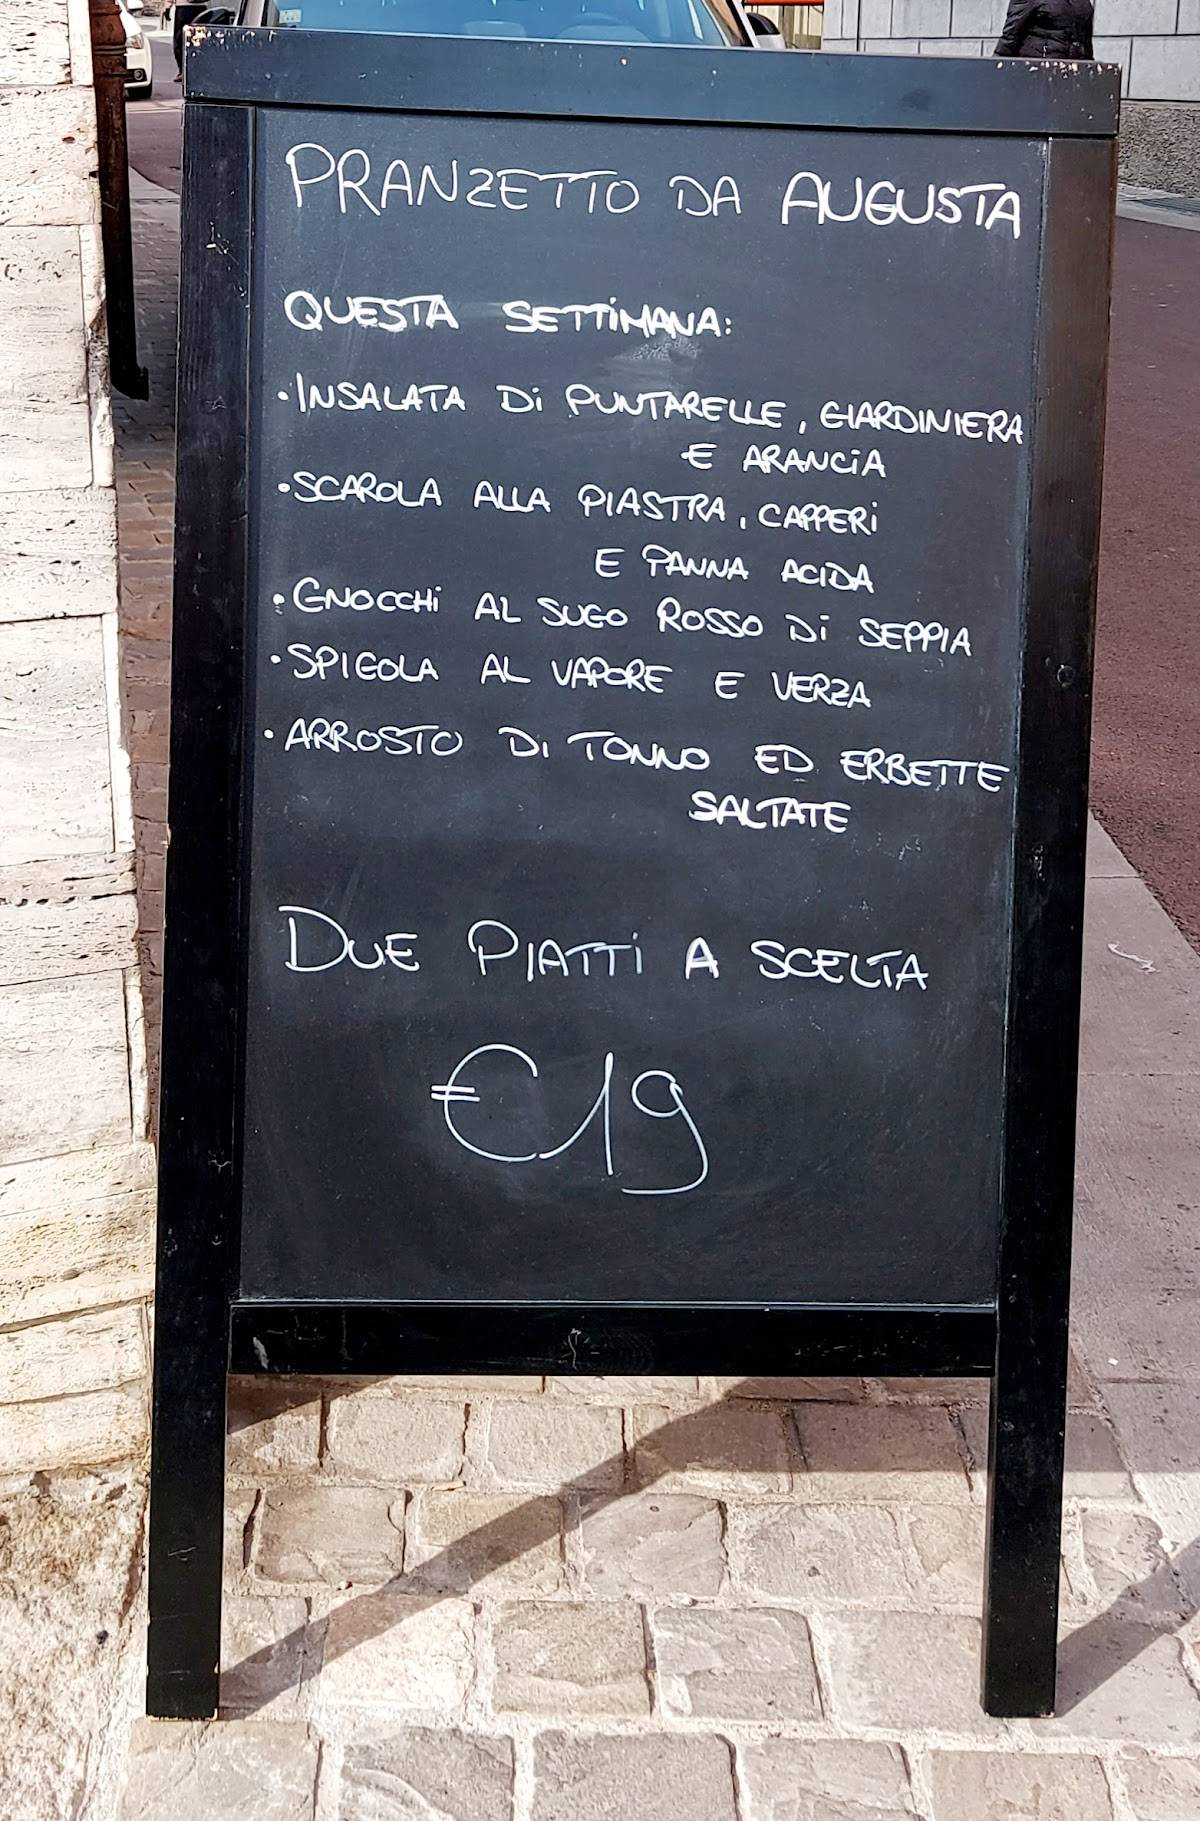 PRANZETTO DA AUGUSTA
QUESTA SETTIMANA:
• INSALATA Di PUNTARELLE, GIARDINIERA
E ARANCiA
• SCAROLA ALLA PIASTRA, CAPPERi
E PANNA ACIDA
• GNOCCHi AL SUGO ROSSO Di SEPPIA
• SPIGOLA AL VAPORE E VERZA
• ARROSTO Di TONNO ED ERBETTE
SALTATE
DUE PIATTi A SCELTA
€19